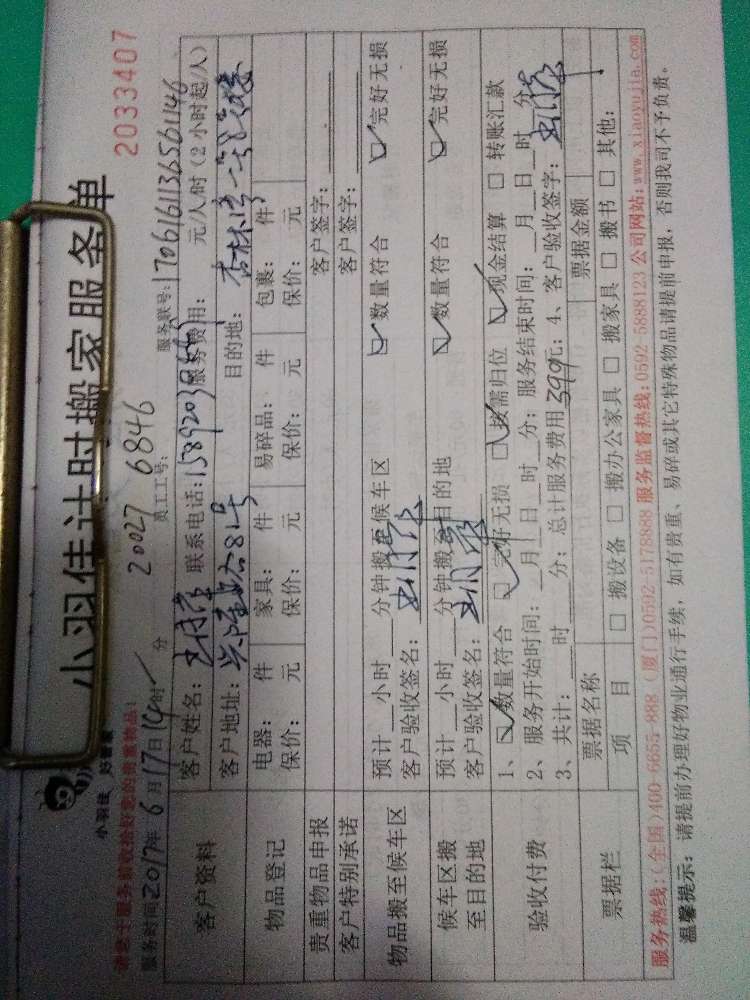 小羽佳计时搬家服务单
2033407
小羽佳 好管家
请您于服务前收拾好您的贵重物品!
20027 6846
服务时间2017年6月17日14时 分 员工工号: 服务联号:17061611365561146
客户资料 客户姓名: 联系电话: 服务费用: 元/人/时(2小时起/人)
客户地址: 目的地:
物品登记 电器: 件 家具: 件 易碎品: 件 包裹: 件
保价: 元 保价: 元 保价: 元 保价: 元
贵重物品申报 客户签字:
客户特别承诺 客户签字:
物品搬至候车区 预计 小时 分钟搬至候车区 数量符合 完好无损
客户验收签名:
候车区搬至目的地 预计 小时 分钟搬至目的地 数量符合 完好无损
客户验收签名:
验收付费 1、 数量符合 完好无损 按需归位 现金结算 转账汇款
2、服务开始时间: 月 日 时 分; 服务结束时间: 月 日 时 分
3、共计: 时 分; 总计服务费用399元; 4、客户验收签字:
票据栏 票据名称 票据金额
项 目 搬设备 搬办公家具 搬家具 搬书 其他:
服务热线:(全国)400-6655-888 (厦门)0592-5178888 服务监督热线:0592-5888123 公司网站:www.xiaoyujia.com
温馨提示: 请提前办理好物业通行手续, 如有贵重、易碎或其它特殊物品请提前申报, 否则我司不予负责。